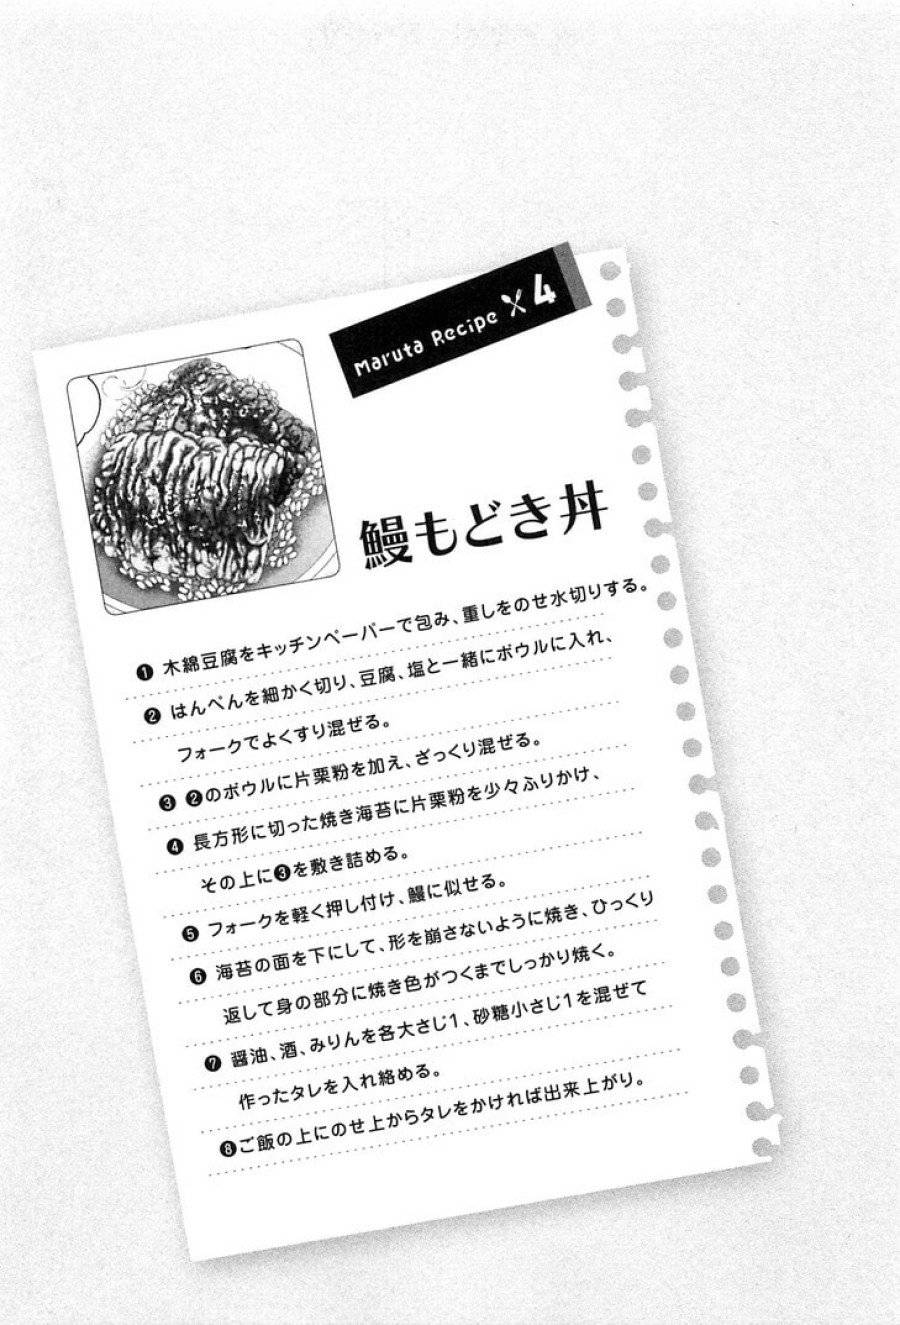 Maruta Recipe 4
鰻もどき丼
❶ 木綿豆腐をキッチンペーパーで包み、重しをのせ水切りする。
❷ はんぺんを細かく切り、豆腐、塩と一緒にボウルに入れ、
フォークでよくすり混ぜる。
❸ ❷のボウルに片栗粉を加え、ざっくり混ぜる。
❹ 長方形に切った焼き海苔に片栗粉を少々ふりかけ、
その上に❸を敷き詰める。
❺ フォークを軽く押し付け、鰻に似せる。
❻ 海苔の面を下にして、形を崩さないように焼き、ひっくり
返して身の部分に焼き色がつくまでしっかり焼く。
❼ 醤油、酒、みりんを各大さじ1、砂糖小さじ1を混ぜて
作ったタレを入れ絡める。
❽ご飯の上にのせ上からタレをかければ出来上がり。